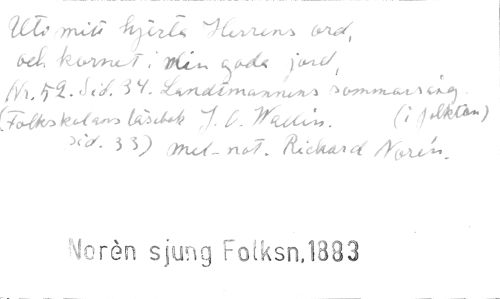 Uti mitt hjerta Herrens ord,
och kornet i min goda jord,
Nr. 52. Sid. 34. Landtmannens sommarsång.
(Folkskolans läsebok J. O. Wallin. (i folkton)
sid. 33) mel-not. Richard Norén.
Norèn sjung Folksn, 1883